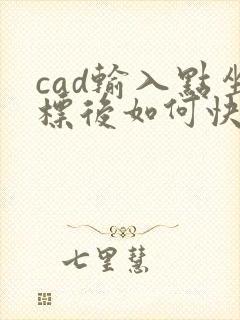 cad輸入點坐
標後如何快
七里慧